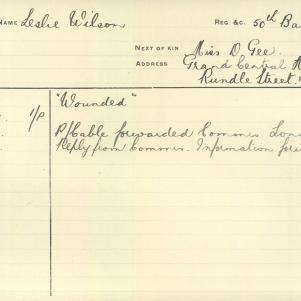 NAME Leslie Wilson REG. &C. 50th Ba
NEXT OF KIN Miss D. Gee.
ADDRESS Grand Central
Rundle Street.
1/p "Wounded"
P/Cable forwarded Commrs Lon
Reply from Commrs. Information